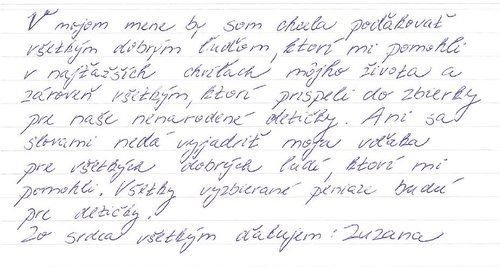 V mojom mene by som chcela poďakovať
všetkým dobrým ľuďom, ktorí mi pomohli
v najťažších chvíľach môjho života a
zároveň všetkým, ktorí prispeli do zbierky
pre naše nenarodené detičky. Ani sa
slovami nedá vyjadriť moja vďaka
pre všetkých dobrých ľudí, ktorí mi
pomohli. Všetky vyzbierané peniaze budú
pre detičky.
Zo srdca všetkým ďakujem: Zuzana